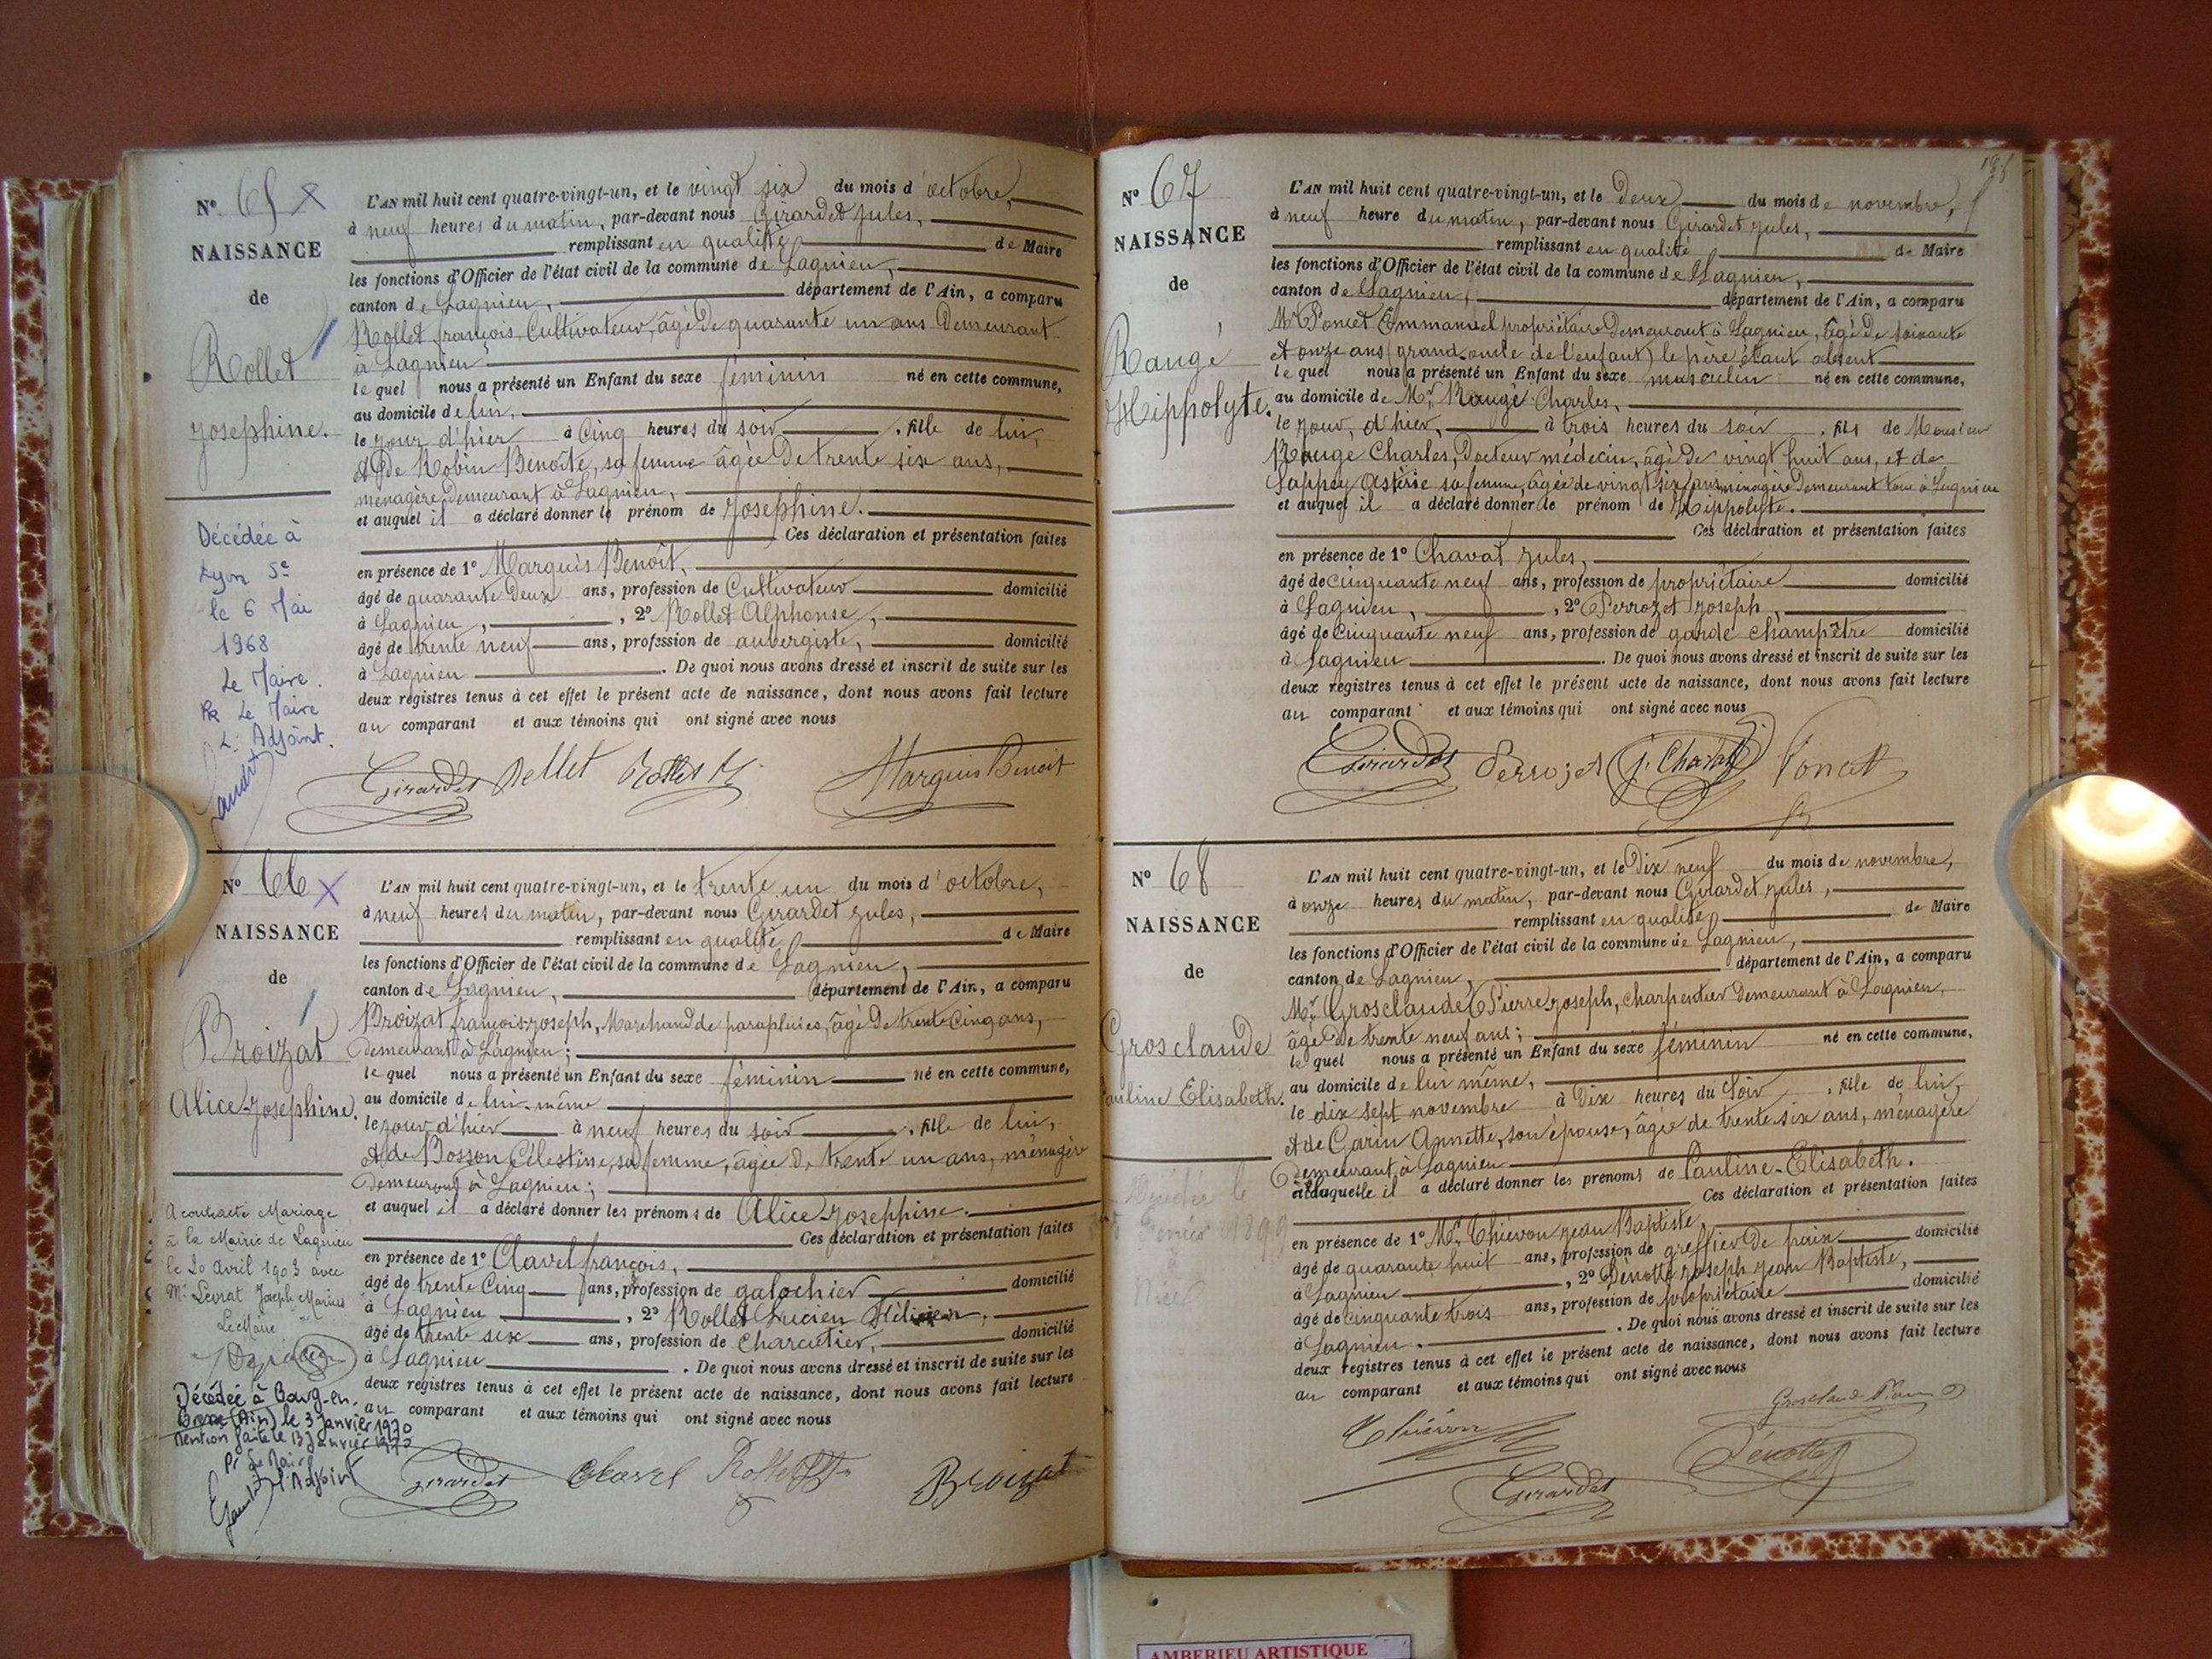 N° 65 X
NAISSANCE
de
Rollet
Josephine.
Décédée à
Lyon 5e
le 6 Mai
1968
Le Maire.
Pr Le Maire
L'Adjoint.
L'AN mil huit cent quatre-vingt-un, et le vingt six du mois d'octobre,
à neuf heures du matin, par-devant nous Girardet Jules,
remplissant en qualité de Maire
les fonctions d'Officier de l'état civil de la commune de Lagnieu,
canton de Lagnieu, département de l'Ain, a comparu
Rollet françois, Cultivateur, âgé de quarante un ans Demeurant
à Lagnieu
le quel nous a présenté un Enfant du sexe féminin né en cette commune,
au domicile de lui,
le jour d'hier à Cinq heures du soir, fille de lui,
et de Robin Benoîte, sa femme âgée De trente six ans,
ménagère Demeurant à Lagnieu,
et auquel il a déclaré donner le prénom de Josephine.
Ces déclaration et présentation faites
en présence de 1° Marquis Benoît,
âgé de quarante Deux ans, profession de Cultivateur domicilié
à Lagnieu, , 2° Rollet Alphonse,
âgé de trente neuf ans, profession de aubergiste, domicilié
à Lagnieu . De quoi nous avons dressé et inscrit de suite sur les
deux registres tenus à cet effet le présent acte de naissance, dont nous avons fait lecture
au comparant et aux témoins qui ont signé avec nous
Girardet Rollet Rollet Marquis Benoit
N° 66 X
NAISSANCE
de
Broizat
Alice-Josephine.
A contracté Mariage
à la Mairie de Lagnieu
le 20 avril 1903 avec
Mr Levrat Joseph Marius
Le Maire
Décédée à Bourg-en-
Bresse (Ain) le 3 Janvier 1970
Mention faite le 13 Janvier 1970
Pr Le Maire
l'Adjoint
L'AN mil huit cent quatre-vingt-un, et le trente un du mois d'octobre,
à neuf heures du matin, par-devant nous Girardet Jules,
remplissant en qualité de Maire
les fonctions d'Officier de l'état civil de la commune de Lagnieu,
canton de Lagnieu, département de l'Ain, a comparu
Broizat françois-Joseph, Marchand de parapluies, âgé De trente Cinq ans,
Demeurant à Lagnieu;
le quel nous a présenté un Enfant du sexe féminin né en cette commune,
au domicile de lui-même
le jour d'hier à neuf heures du soir, fille de lui,
et de Bosson Célestine, sa femme, âgée De trente un ans, ménagère
Demeurant à Lagnieu;
et auquel il a déclaré donner les prénoms de Alice-Josephine.
Ces déclaration et présentation faites
en présence de 1° Clavel françois,
âgé de trente Cinq ans, profession de galochier domicilié
à Lagnieu , 2° Rollet Lucien Félicien,
âgé de trente six ans, profession de Charcutier, domicilié
à Lagnieu . De quoi nous avons dressé et inscrit de suite sur les
deux registres tenus à cet effet le présent acte de naissance, dont nous avons fait lecture
au comparant et aux témoins qui ont signé avec nous
Girardet Clavel Rollet Broizat
N° 67
NAISSANCE
de
Raugé
Hippolyte.
L'AN mil huit cent quatre-vingt-un, et le Deux du mois de novembre,
à neuf heure du matin, par-devant nous Girardet Jules,
remplissant en qualité de Maire
les fonctions d'Officier de l'état civil de la commune de Lagnieu,
canton de Lagnieu, département de l'Ain, a comparu
Mr Poncet Emmanuel propriétaire Demeurant à Lagnieu, âgé De soixante
et onze ans (grand-oncle de l'enfant) le père étant absent
le quel nous a présenté un Enfant du sexe masculin né en cette commune,
au domicile de Mr Raugé Charles,
le jour, d'hier, à trois heures du soir, fils de Monsieur
Rauge Charles, Docteur médecin, âgé De vingt huit ans, et de
Sappey Astérie sa femme, âgée de vingt six ans ménagère Demeurant tous à Lagnieu
et auquel il a déclaré donner le prénom de Hippolyte.
Ces déclaration et présentation faites
en présence de 1° Chavat Jules,
âgé de Cinquante neuf ans, profession de propriétaire domicilié
à Lagnieu, , 2° Perrozet Joseph,
âgé de Cinquante neuf ans, profession de garde champêtre domicilié
à Lagnieu . De quoi nous avons dressé et inscrit de suite sur les
deux registres tenus à cet effet le présent acte de naissance, dont nous avons fait lecture
au comparant et aux témoins qui ont signé avec nous
Girardet Perrozet J. Chavat Poncet
N° 68
NAISSANCE
de
Grosclaude
Pauline Elisabeth.
Décédée le
Février 1899
à
Nice
L'AN mil huit cent quatre-vingt-un, et le Dix neuf du mois de novembre,
à onze heures du matin, par-devant nous Girardet Jules,
remplissant en qualité de Maire
les fonctions d'Officier de l'état civil de la commune de Lagnieu,
canton de Lagnieu, département de l'Ain, a comparu
Mr Grosclaude Pierre Joseph, charpentier Demeurant à Lagnieu,
âgé De trente neuf ans;
le quel nous a présenté un Enfant du sexe féminin né en cette commune,
au domicile de lui même,
le dix sept novembre à Dix heures du Soir, fille de lui,
et de Carin Annette, son épouse, âgée de trente six ans, ménagère
Demeurant à Lagnieu
et à laquelle il a déclaré donner les prenoms de Pauline-Elisabeth.
Ces déclaration et présentation faites
en présence de 1° Mr Thiévon Jean Baptiste, domicilié
âgé de quarante huit ans, profession de greffier De paix
à Lagnieu , 2° Dénotte Joseph Jean Baptiste,
âgé de cinquante trois ans, profession de propriétaire domicilié
à Lagnieu . De quoi nous avons dressé et inscrit de suite sur les
deux registres tenus à cet effet le présent acte de naissance, dont nous avons fait lecture
au comparant et aux témoins qui ont signé avec nous
Grosclaude Pierre
Thiévon
Dénotte
Girardet
AMBERIEU ARTISTIQUE